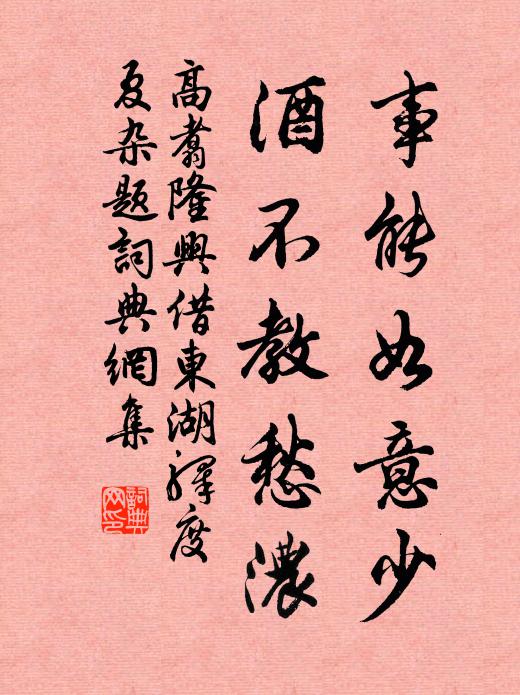 事能如意少
酒不教愁濃
高翥隆興借東湖驛度
夏杂題詞典網集
詞典
网印